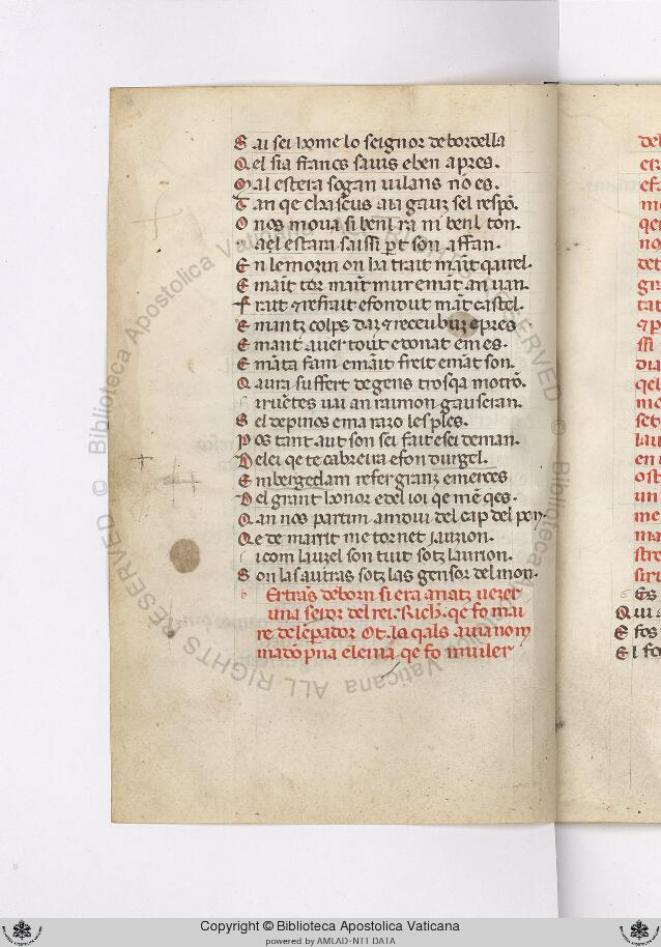 S ai sei home lo seignor de bordella
Q el sia francs sauis e ben apres.
M al estera so gan uilans nō es.
T an qe chascus aia gauz sel respō.
O nos moua si benl ra ni benl ton.
ael estara saissi p̄t son affan.
E n lemozin on ha trait māit qairel.
E māit tor māit mur e māt anuan.
F rait & refrait e fondut māt castel.
E mantz colps dat & receubuz e pres
E mant auer tout e donat e mes.
E māta fam e māit freit e māt son.
Q aura suffert de gens trosqa motrō.
S iruētes uai an raimon gauseran.
S el de pinos e ma razo lesples.
P os tant aut son sei fait e sei deman.
D e lei qe te cabreira e fon durgel.
E n bergedam refer granz merces
D el grant honor e del ioi qe mē qes.
Q an nos partim amdui del cap del pon.
Q e de marrit me tornet iauzion.
S i com lauzel son tuit sotz laurion.
S on las autras sotz la gensor del mon.
B Ertrās de born si era anatz uezer
una seror del rei. Rich. qe fo mai
re del ēperador Ot. la qals auia nom
madō pna eleina qe fo muiler
Copyright © Biblioteca Apostolica Vaticana
powered by AMLAD-NTT DATA